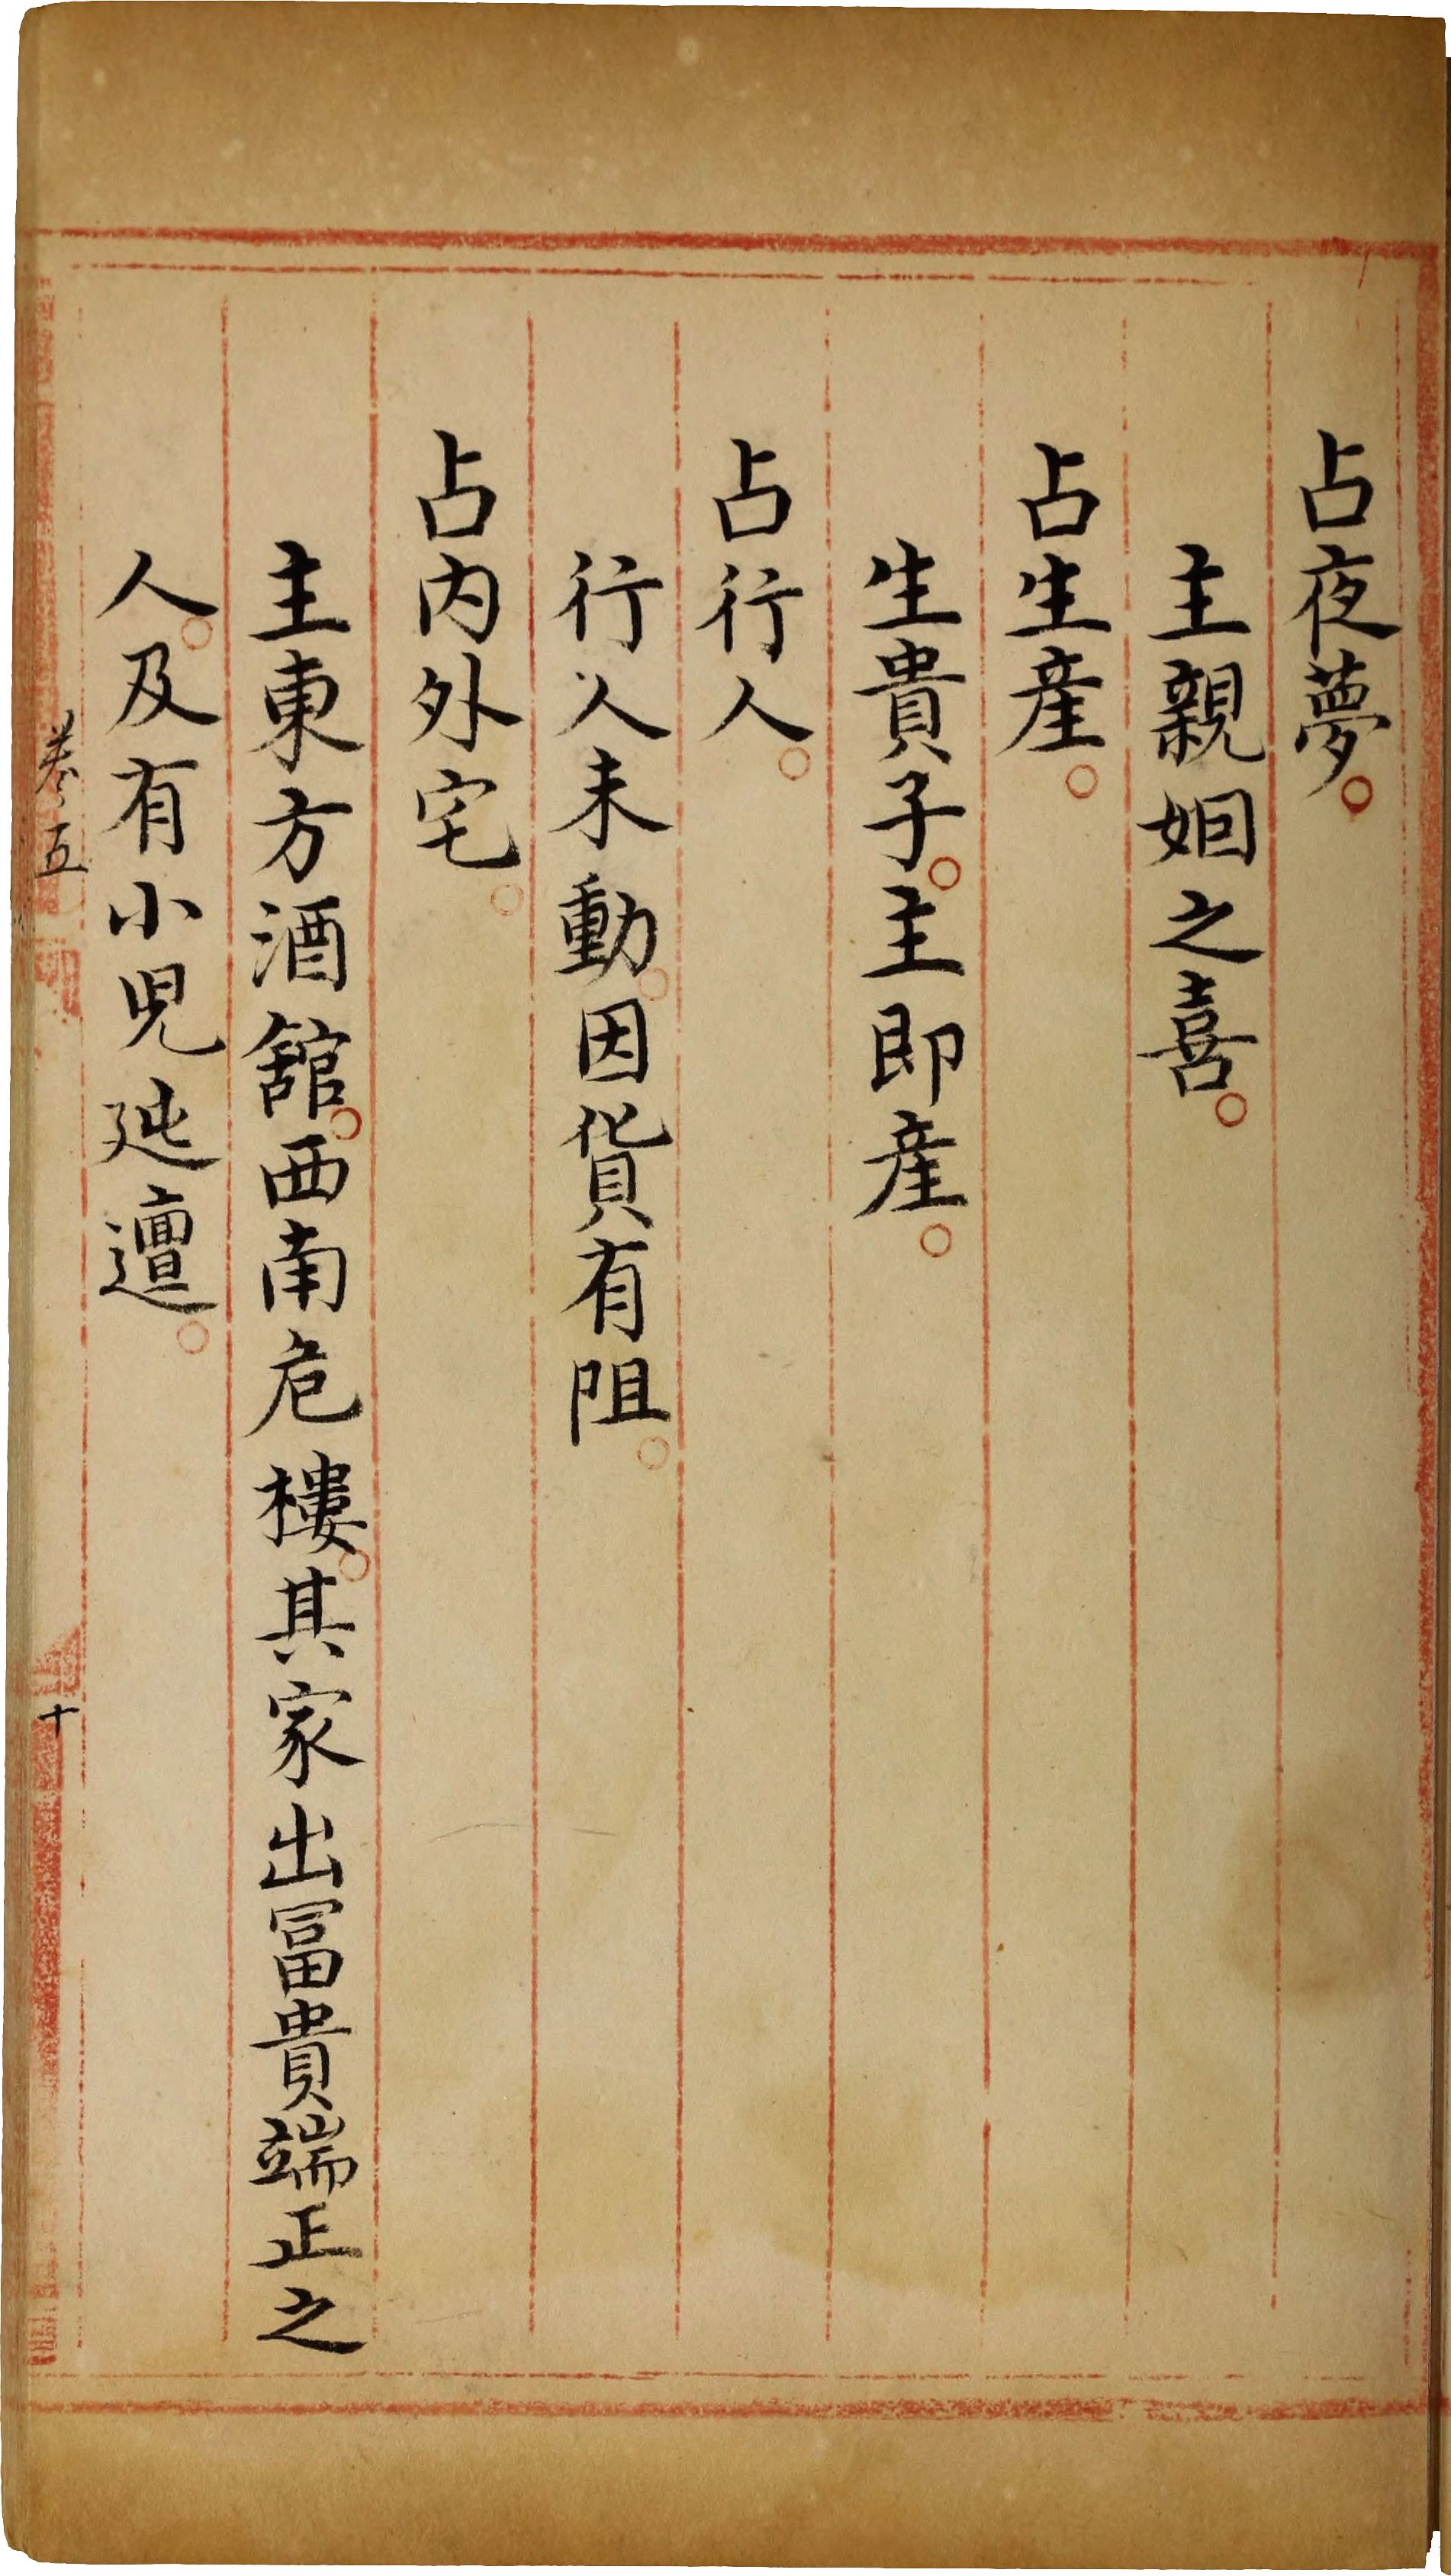 占夜夢。
主親姻之喜。
占生産。
生貴子。主即産。
占行人。
行人未動。因貨有阻。
占内外宅。
主東方酒舘。西南危樓。其家出冨貴端正之
人。及有小児迍邅。
卷五
十